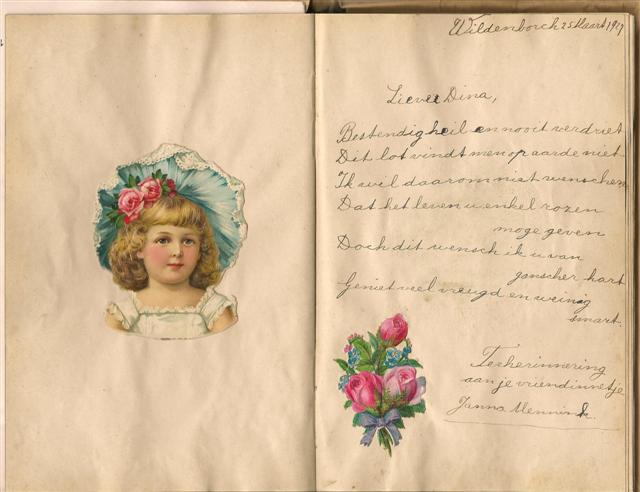 Wildenborch 25 Maart 1927
Lieve Dina,
Bestendig heil en nooit verdriet
Dit lot vindt men op aarde niet
Ik wil daarom niet wenschen
Dat het leven u enkel rozen
moge geven
Doch dit wensch ik u van
ganscher hart
Geniet veel vreugd en weinig
smart.
Ter herinnering
aan je vriendinnetje
Janna Mennink.